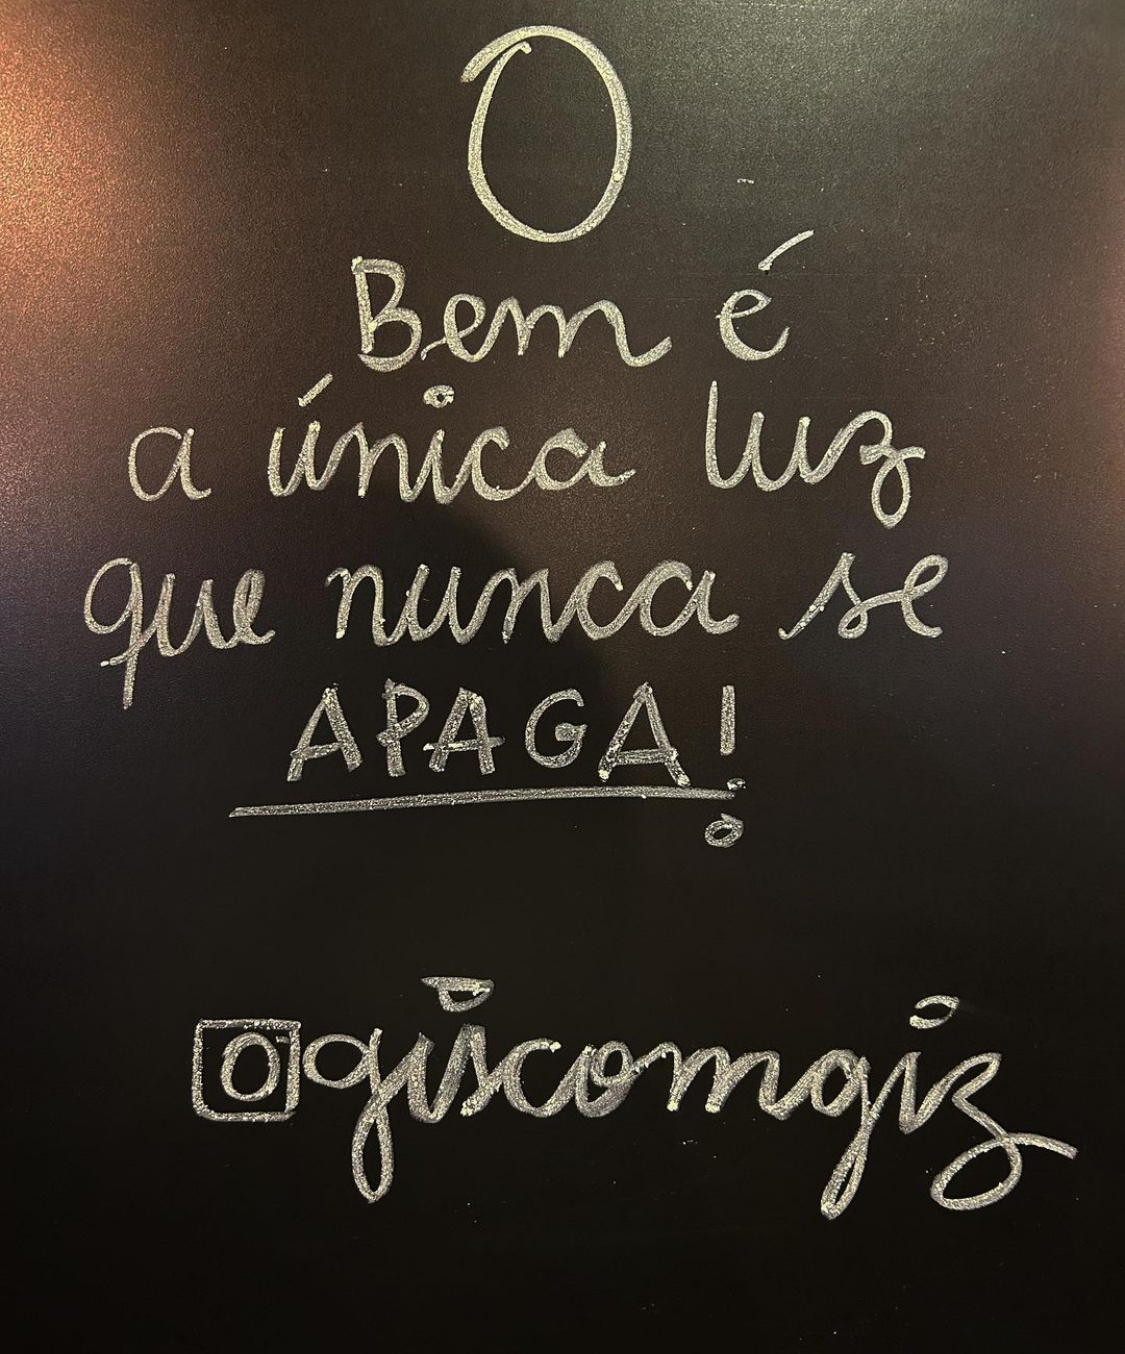 O
Bem é
a única luz
que nunca se
APAGA!
giscomgiz